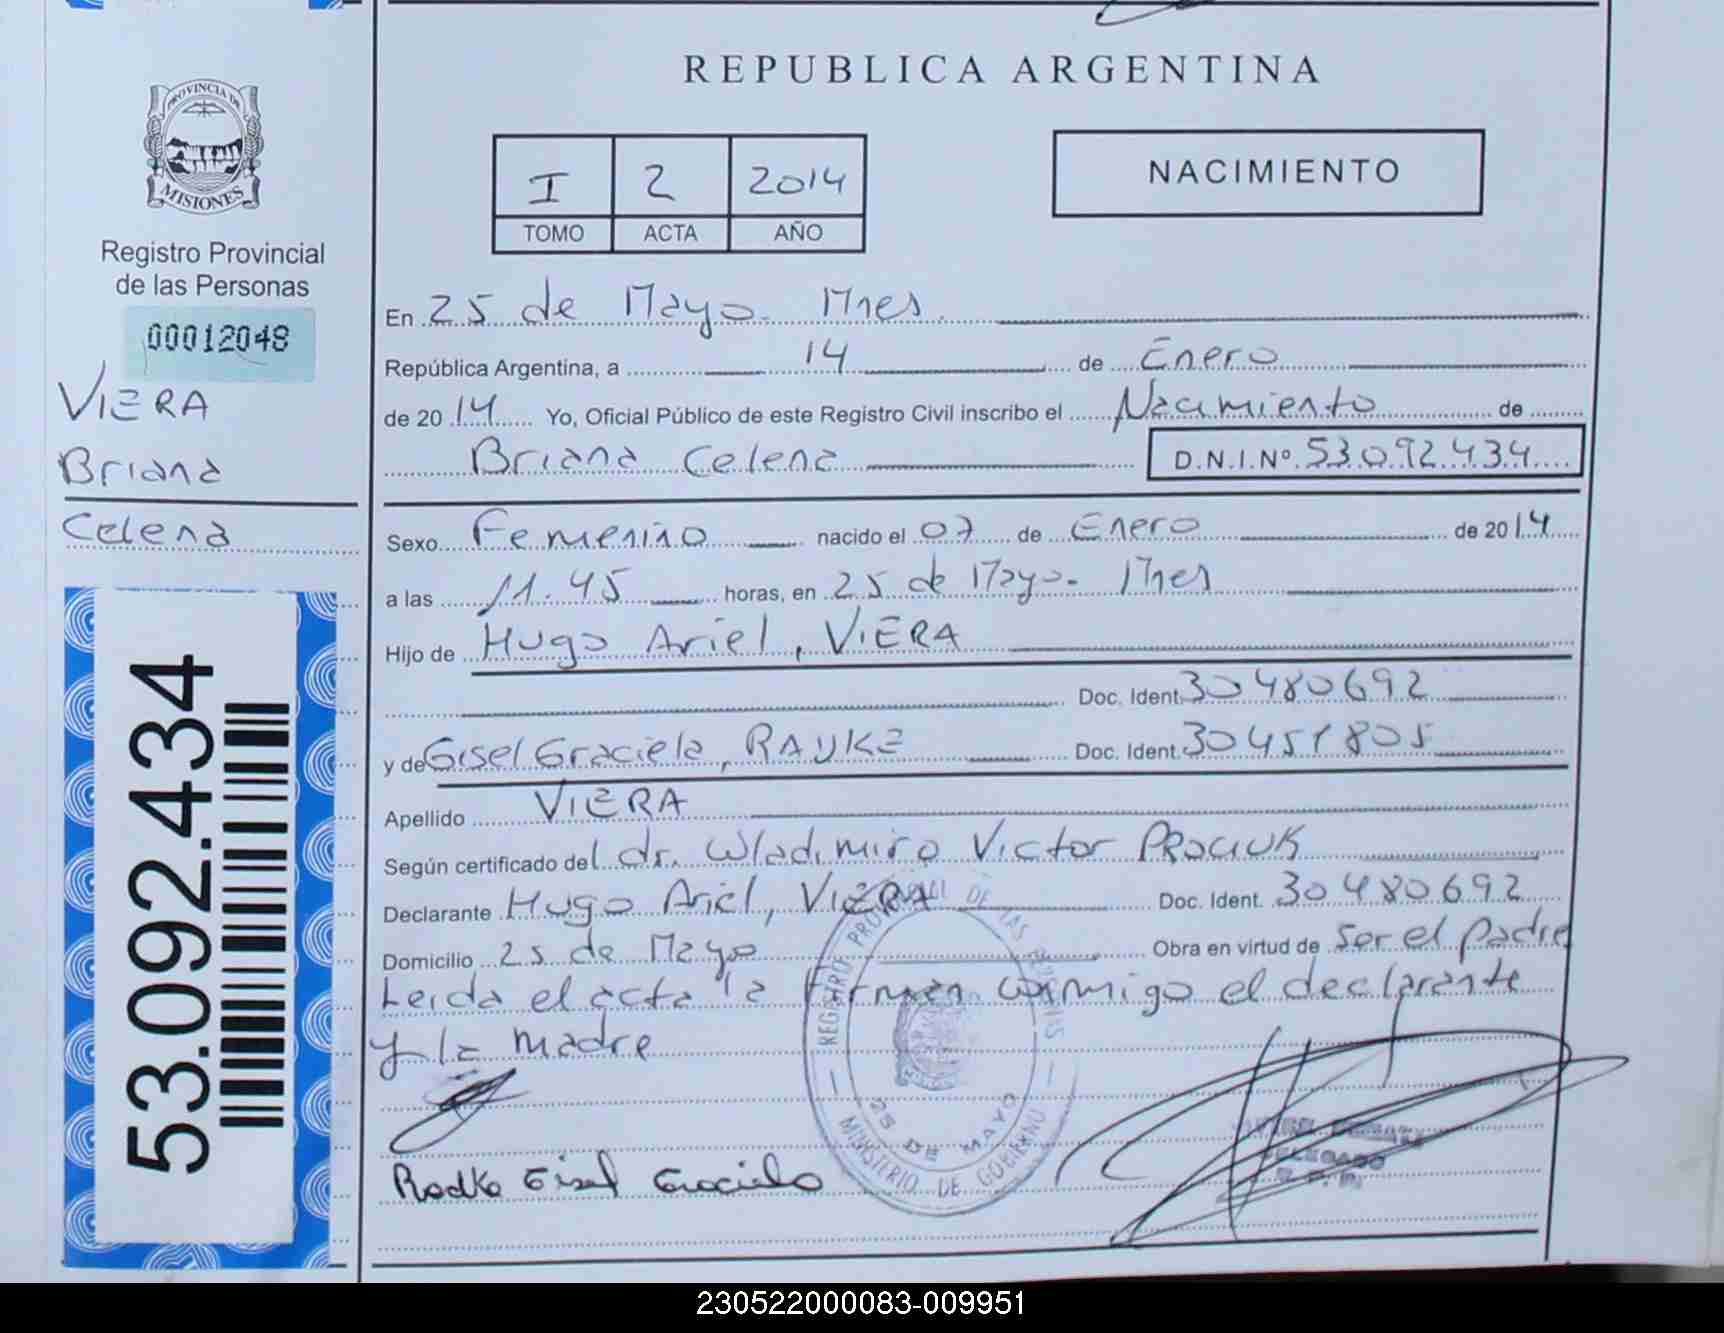 PROVINCIA DE
MISIONES
Registro Provincial
de las Personas
00012048
VIERA
Briana
Celena
53.092.434
REPUBLICA ARGENTINA
I 2 2014
TOMO ACTA AÑO
NACIMIENTO
En 25 de Mayo. Mnes.
República Argentina, a 14 de Enero
de 2014 Yo, Oficial Público de este Registro Civil inscribo el Nacimiento de
Briana Celena D.N.I.Nº. 53.092.434
Sexo Femenino nacido el 07 de Enero de 2014
a las 11.45 horas, en 25 de Mayo. Mnes
Hijo de Hugo Ariel, VIERA
Doc. Ident. 30480692
y de Gisel Graciela, Doc. Ident. 30451805
Apellido VIERA
Según certificado del dr. Wladimiro Victor PROCIUK
Declarante Hugo Ariel, VIERA Doc. Ident. 30480692
Domicilio 25 de Mayo Obra en virtud de Ser el padre
Leida el acta la Firman conmigo el declarante
y la madre
REGISTRO PROVINCIAL DE LAS PERSONAS
25 DE MAYO
MINISTERIO DE GOBIERNO
Radke Gisel Graciela
DELEGADO
230522000083-009951